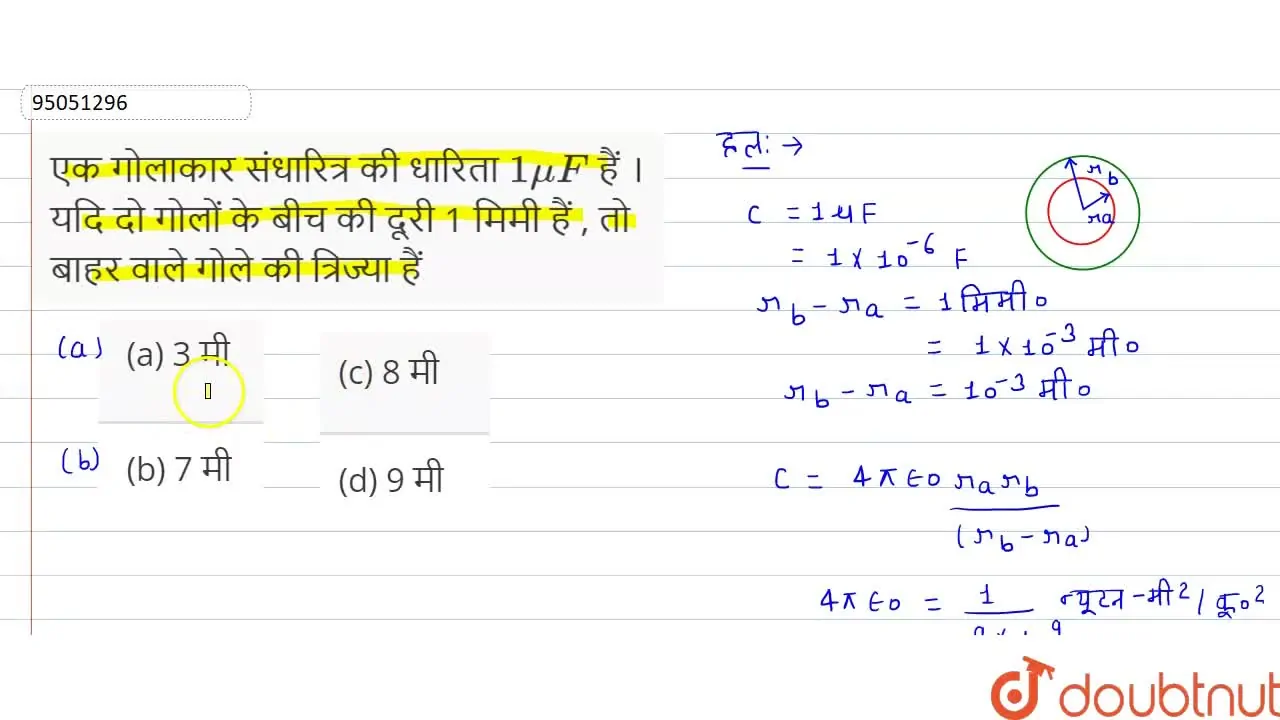 95051296
एक गोलाकार संधारित्र की धारिता 1μF हैं ।
यदि दो गोलों के बीच की दूरी 1 मिमी हैं , तो
बाहर वाले गोले की त्रिज्या हैं
(a) (a) 3 मी
(c) 8 मी
(b) (b) 7 मी
(d) 9 मी
हलः →
r_b
r_a
C = 1 μF
= 1 × 10^-6 F
r_b - r_a = 1 मिमी०
= 1 × 10^-3 मी०
r_b - r_a = 10^-3 मी०
C = 4π ε0 r_a r_b / (r_b - r_a)
4π ε0 = 1 / 9 × 9 न्यूटन - मी^2 / कू०^2
doubtnut